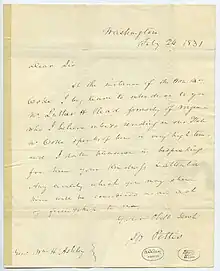 Washington
Feby 24 1831
Dear Sir
At the instance of the Hon. Mr
Cooke I beg leave to introduce to you
Mr Luther H Read formerly of Virginia
Who I believe intends residing in
Mr Cooke speaks of him in very high terms
and I take pleasure in bespeaking
for him your kindness & attention
Any civility which you may show
him will be considered as an act
of to me
Your Obt Servt
Sp Pettis
Genl Wm H. Ashley